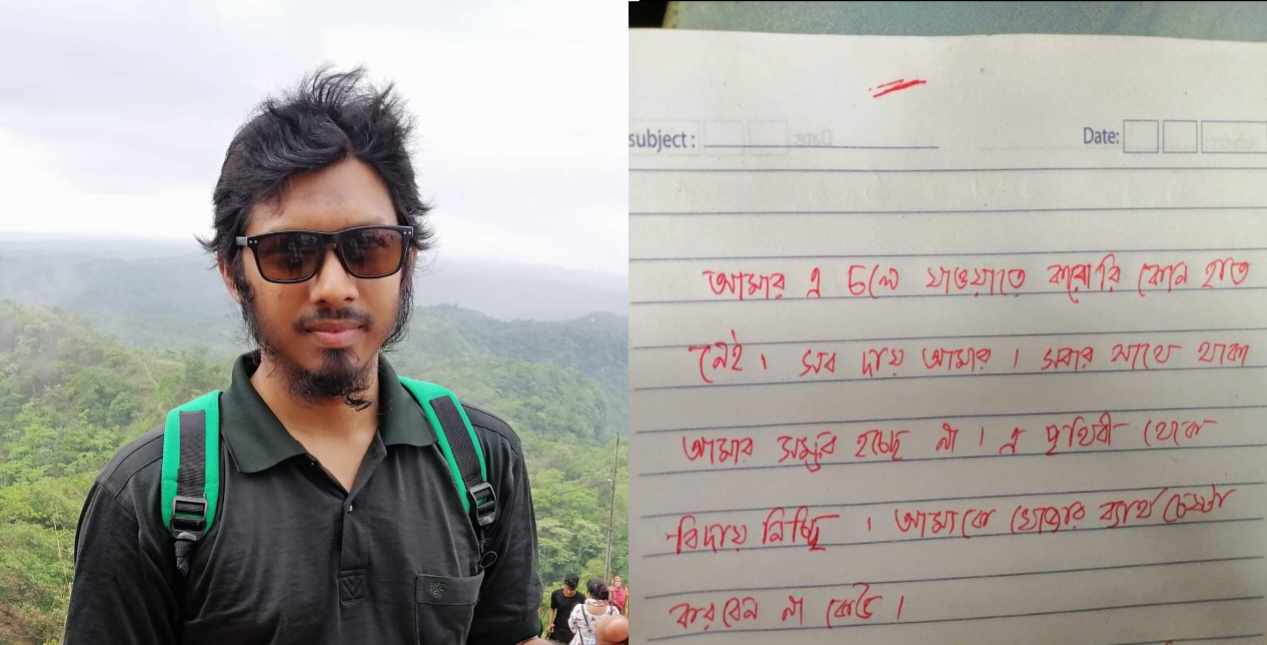 subject :
Date:
আমার এ চলে যাওয়াতে কারোরি কোন হাত
নেই। সব দায় আমার। সবার সাথে থাকা
আমার সম্ভব হচ্ছে না। এ পৃথিবী থেকে
বিদায় নিচ্ছি। আমাকে খোজার ব্যার্থ চেষ্টা
করবেন না কেউ।